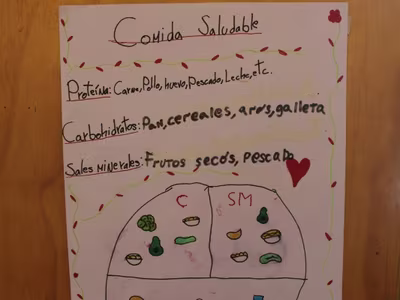 Comida Saludable
Proteína: Carne, Pollo, huevo, Pescado, Leche, etc.
Carbohidratos: Pan, cereales, aros, galleta
Sales Minerales: Frutos secos, pescado
C SM